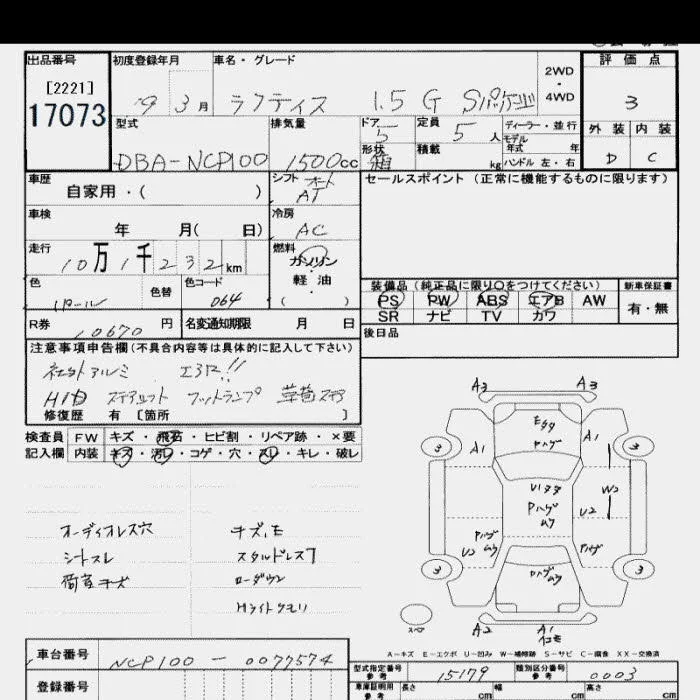 出品番号 初度登録年月 車名・グレード 評価点
[2221] 2WD・4WD
17073 19 3月 ラクティス 1.5 G Sパケージ 3
型式 排気量 ドア 5 定員 5人 ディーラー・並行 外装 内装
形状 箱 積載 kg モデル年式 年
DBA-NCP100 1500cc ハンドル 左・右 D C
車歴 シフト オート セールスポイント (正常に機能するものに限ります)
自家用・( ) AT
車検 冷房
年 月( 日) AC
走行 燃料
10万1千232km ガソリン・
色 色替 色コード 軽油 装備品 (純正品に限り○をつけてください) 新車保証書
パール 064 ( ) PS PW ABS エアB AW 有・無
R券 10670円 名変通知期限 月 日 SR ナビ TV カワ
注意事項申告欄(不具合内容等は具体的に記入して下さい) 後日品
社外アルミ エアロ!!
HID フットランプ
修復歴 有 [箇所 ]
検査員 FW キズ・飛石・ヒビ割・リペア跡・×要
記入欄 内装 キズ・汚レ・コゲ・穴・スレ・キレ・破レ
A3 A3
3 A1 A1 3
W2
U2
U2
3 3
A2 A1
オーディオレス穴 キズ,E
シートスレ スタルドレス7
荷室キズ ローダウン
Hライトクモリ
スペア
A-キズ E-エクボ U-凹み W-補修跡 S-サビ C-腐食 XX-交換済
車台番号 NCP100 - 0077574 型式指定番号 参考 15179 類別区分番号 参考 0003
登録番号 車庫証明用 参考 長さ cm 幅 cm 高さ cm